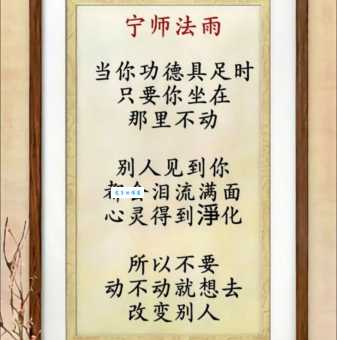 宁师法雨
当你功德具足时
只要你坐在
那里不动
别人见到你
都会泪流满面
心灵得到淨化
所以不要
动不动就想去
改变别人